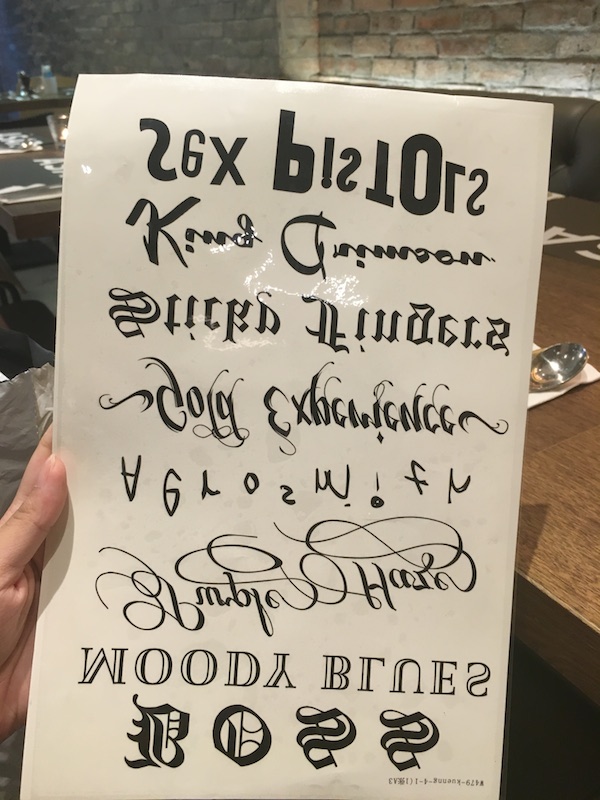 Sex Pistols
King Crimson
Sticky Fingers
Gold Experience
Aerosmith
Purple Haze
MOODY BLUES
BOSS